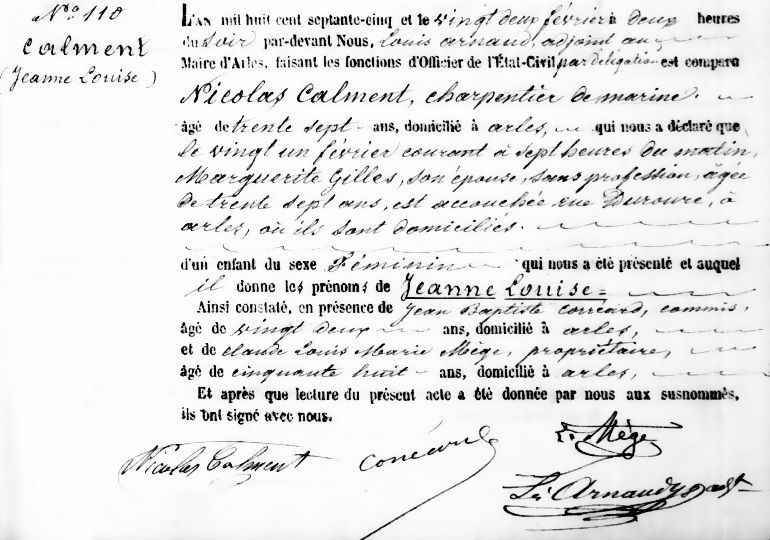 N.º 110
Calment
(Jeanne Louise)
L'AN mil huit cent septante-cinq et le vingt deux février à deux heures
du soir par-devant Nous, Louis arnaud, adjoint au
Maire d'Arles, faisant les fonctions d'Officier de l'État-Civil par délégation est comparu
Nicolas Calment, charpentier de marine.
âgé de trente sept ans, domicilié à arles, qui nous a déclaré que
le vingt un février courant à sept heures du matin,
Marguerite Gilles, son épouse, sans profession, âgée
de trente sept ans, est accouchée rue Duroure, à
arles, où ils sont domiciliés.
d'un enfant du sexe Féminin qui nous a été présenté et auquel
il donne les prénoms de Jeanne Louise =
Ainsi constaté, en présence de Jean Baptiste Corréard, commis,
âgé de vingt deux ans, domicilié à arles,
et de claude Louis Marie Mège, propriétaire,
âgé de cinquante huit ans, domicilié à arles,
Et après que lecture du présent acte a été donnée par nous aux susnommés,
ils ont signé avec nous.
Nicolas Calment Corréard L. Mège
Ls Arnaud adjt